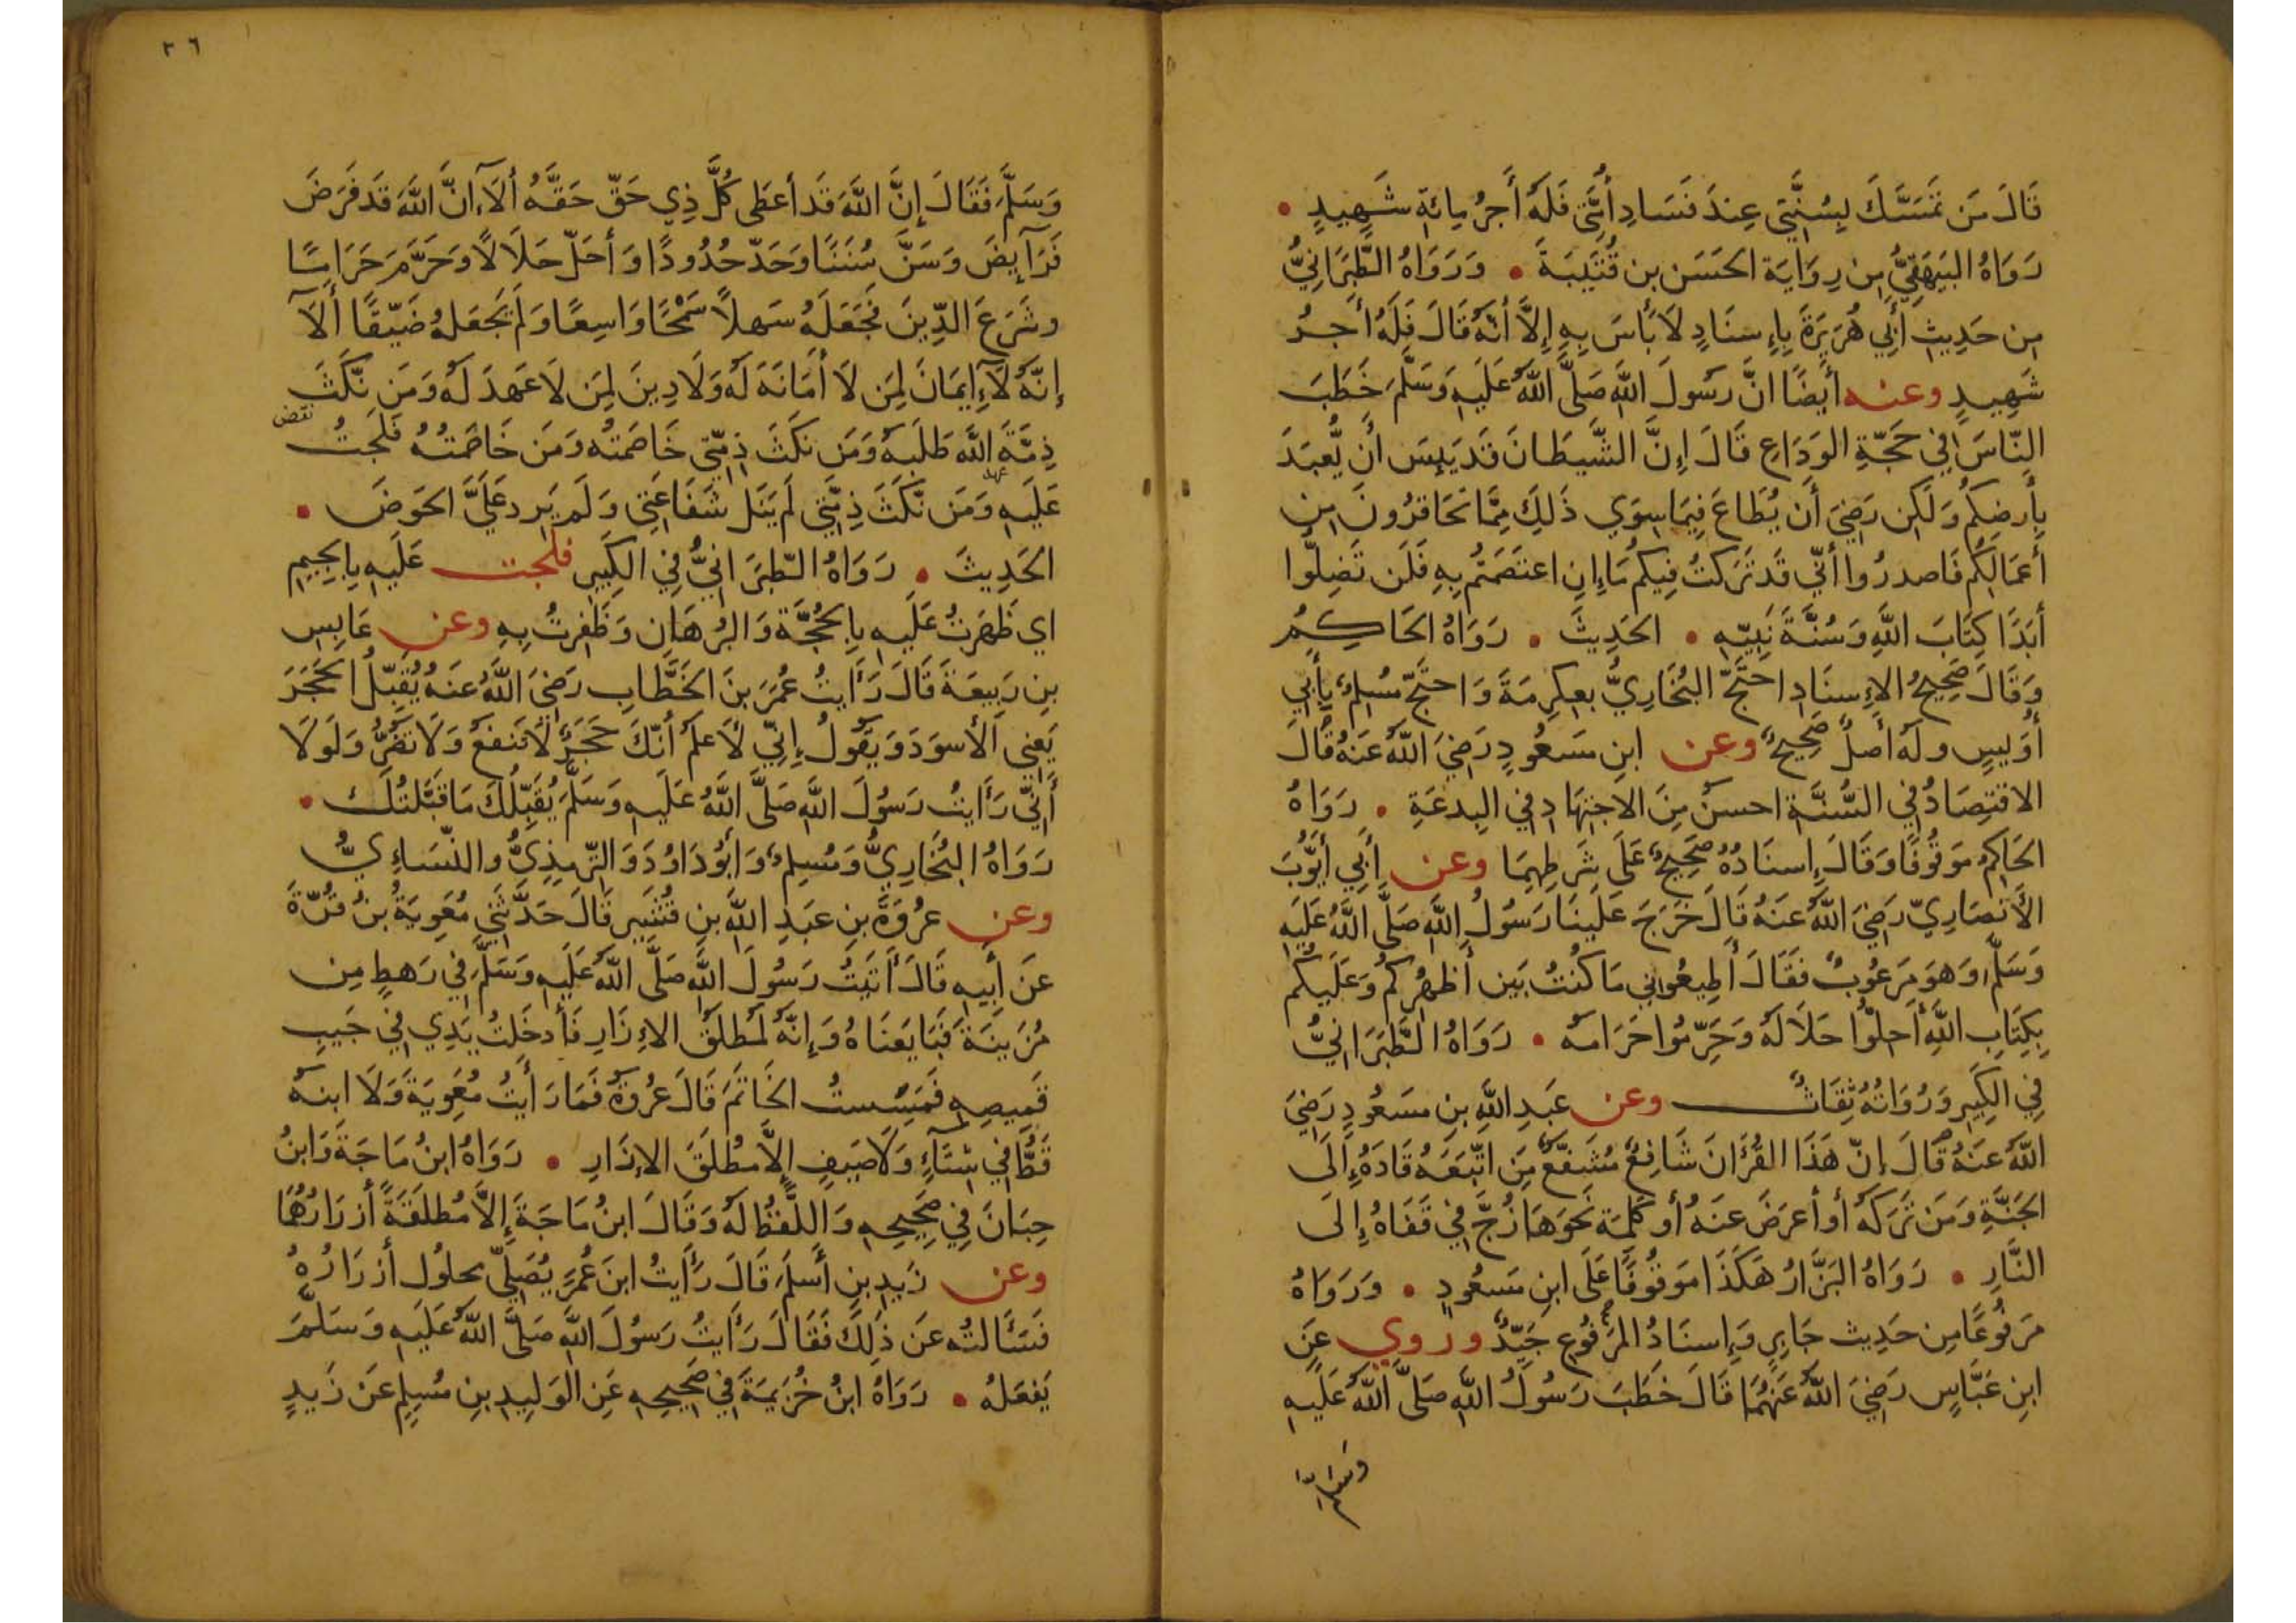 قَالَ مَن تَمَسَّكَ بِسُنَّتِي عِندَ فَسَادِ أُمَّتِي فَلَهُ أَجرُ مِائَةِ شَهِيدٍ •
رَوَاهُ البَيهَقِيُّ مِن رِوَايَة الحَسَن بن قُتَيبَةَ • وَرَوَاهُ الطَّبَرَانِيُّ
مِن حَدِيثِ أَبِي هُرَيرَةَ بِإِسنَادٍ لَا بَأسَ بِهِ إِلَّا أَنَّهُ قَالَ فَلَهُ أَجرُ
شَهِيدٍ وعنه أَيضًا انَّ رَسُولَ اللَّهِ صَلَّى اللَّهُ عَلَيهِ وَسَلَّمَ خَطَبَ
النَّاسَ فِي حَجّةِ الوَدَاعِ قَالَ إِنَّ الشَّيطَانَ قَد يَئِسَ أَن يُّعبَدَ
بِأَرضِكُم وَلَكِن رَضِيَ أَن يُطَاعَ فِيمَا سِوَي ذَلِكَ مِمَّا تَحَاقَرُونَ مِن
أَعمَالِكُم فَاحذَرُوا أَنّي قَد تَرَكتُ فِيكُم مَا إِنِ اعتَصَمتُم بِهِ فَلَن تَضِلُّوا
أَبَدًا كِتَابَ اللَّهِ وَسُنَّةَ نَبِيّهِ • الحَدِيثَ • رَوَاهُ الحَاكِمُ
وَقَالَ صَحِيحُ الإِسنَادِ احتَجَّ البُخَارِيُّ بعِكرِمَةَ وَاحتَجَّ مُسلِمٌ بِأَبِي
أُوَيسٍ وله أَصلٌ صَحِيحٌ وعن ابنِ مَسعُودٍ رَضِيَ اللَّهُ عَنهُ قَالَ
الاقتِصَادُ فِي السُّنَّةِ احسَنُ مِنَ الاجتِهَادِ فِي البِدعَةِ • رَوَاهُ
الحَاكِمُ مَوقُوفًا وَقَالَ إِسنَادُهُ صَحِيحٌ عَلَى شَرطِهِمَا وعن أَبِي أَيُّوبَ
الأَنصَارِيّ رَضِيَ اللَّهُ عَنهُ قَالَ خَرَجَ عَلَينَا رَسُولُ اللَّهِ صَلَّى اللَّهُ عَلَيهِ
وَسَلَّمَ وَهوَ مَرعُوبٌ فَقَالَ أَطِيعُونِي مَا كُنتُ بَين أَظهُرِكُم وَعَلَيكُم
بِكِتَابِ اللَّهِ أَحِلُّوا حَلَالَهُ وَحَرِّمُوا حَرَامَهُ • رَوَاهُ الطَّبَرَانِيُّ
فِي الكَبِيرِ وَرُوَاتُهُ ثِقَاتٌ وعن عَبدِ اللَّهِ بنِ مَسعُودٍ رَضِيَ
اللَّهُ عَنهُ قَالَ إِنّ هَذَا القُرآنَ شَافِعٌ مُشَفَّعٌ مَن اتّبَعَهُ قَادَهُ إِلَى
الجَنَّةِ وَمَن تَرَكَهُ أَو أَعرَضَ عَنهُ أَو كَلِمَة نَحوَهَا زُجَّ فِي قَفَاهُ إِلَى
النَّارِ • رَوَاهُ البَزَّارُ هَكَذَا مَوقُوفًا عَلَى ابنِ مَسعُودٍ • وَرَوَاهُ
مَرفُوعًا مِن حَدِيث جَابِرٍ وَإِسنَادُ المَرفُوعِ جَيّدٌ وروي عَنِ
ابنِ عَبَّاسٍ رَضِيَ اللَّهُ عَنهُمَا قَالَ خَطَبَ رَسُولُ اللَّهِ صَلَّى اللَّهُ عَلَيهِ
وسلم
٢٦
وَسَلَّمَ فَقَالَ إِنَّ اللَّهَ قَد أَعطَى كُلَّ ذِي حَقّ حَقَّهُ أَلَا إِنَّ اللَّهَ قَد فَرَضَ
فَرَايِضَ وَسَنَّ سُنَنًا وَحَدّ حُدُودًا وَأَحَلّ حَلَالًا وَحَرَّمَ حَرَامًا
وشَرَعَ الدِّينَ فَجَعَلَهُ سَهلاً سَمْحًا وَاسِعًا وَلَم يَجعَلهُ ضَيّقًا أَلَا
إِنَّهُ لَا إِيمَانَ لِمَن لَا أَمَانَةَ لَهُ وَلَا دِينَ لِمَن لَا عَهدَ لَهُ وَمَن نَّكَثَ
نقض
ذِمَّةَ اللَّهِ طَلَبَهُ وَمَن نكَثَ ذِمّتِي خَاصَمتُه وَمَن خَاصَمتُهُ فَلَجتُ
عهد
عَلَيهِ وَمَن نَّكَثَ ذِمَّتِي لَم يَنَل شَفَاعَتِي وَلَم يَرِد عَلَيَّ الحَوضَ •
الحَدِيثَ • رَوَاهُ الطّبَرَانِيُّ فِي الكَبِيرِ فلجت عَلَيهِ بِالجِيمِ
اي ظَهَرتُ عَلَيهِ بِالحُجَّةِ وَالبُرهَانِ وَظَفِرتُ بِهِ وعن عَابِسِ
بنِ رَبِيعَةَ قَالَ رَأَيتُ عُمَرَ بنَ الخَطَّابِ رَضِيَ اللَّهُ عَنهُ يُقَبِّلُ الحَجَرَ
يَعنِي الأَسوَدَ وَيَقُولُ إِنّي لَأَعلَمُ أَنّكَ حَجَرٌ لَا تَنفَعُ وَلَا تَضُرُّ وَلَولَا
أَنِّي رَأَيتُ رَسُولَ اللَّهِ صَلَّى اللَّهُ عَلَيهِ وَسَلَّمَ يُقَبِّلُكَ مَا قَبَّلتُكَ •
رَوَاهُ البُخَارِيُّ وَمُسلِمٌ وَابُو دَاوُدَ وَالتِّرمِذِيُّ والنّسَاءِيُّ
وعن عُروَةَ بنِ عَبدِ اللَّهِ بنِ قُشَيرٍ قَالَ حَدَّثَنِي مُعَوِيَةُ بنُ قُرّةَ
عَن أَبِيهِ قَالَ أَتَيتُ رَسُولَ اللَّهِ صَلَّى اللَّهُ عَلَيهِ وَسَلَّمَ فِي رَهطٍ مِن
مُزَينَةَ فَبَايَعنَاهُ وَإِنَّهُ لَمُطلَقُ الإِزَارِ فَأَدخَلتُ يَدِي فِي جَيبِ
قَمِيصِهِ فَمَسِستُ الخَاتَمَ قَالَ عُروَةُ فَمَا رَأَيتُ مُعَوِيَةَ وَلَا ابنَهُ
قَطُّ فِي شِتَاءٍ وَلَا صَيفٍ إِلَّا مُطلَقَ الإِزَارِ • رَوَاهُ ابنُ مَاجَةَ وَابنُ
حِبَانَ فِي صَحِيحِهِ وَاللَّفظُ لَهُ وَقَالَ ابنُ مَاجَةَ إِلَّا مُطلَقَةً أَزرَارُهُمَا
وعن زَيدِ بنِ أَسلَمَ قَالَ رَأَيتُ ابنَ عُمَرَ يُصَلِّي محلُول أَزرَارُهُ
فَسَأَلتُه عَن ذَلِكَ فَقَالَ رَأَيتُ رَسُولَ اللَّهِ صَلَّى اللَّهُ عَلَيهِ وَسَلَّمَ
يَفعَلهُ • رَوَاهُ ابنُ خُزَيمَةَ فِي صَحِيحِهِ عَنِ الوَلِيدِ بنِ مُسلِمٍ عَن زَيدٍ